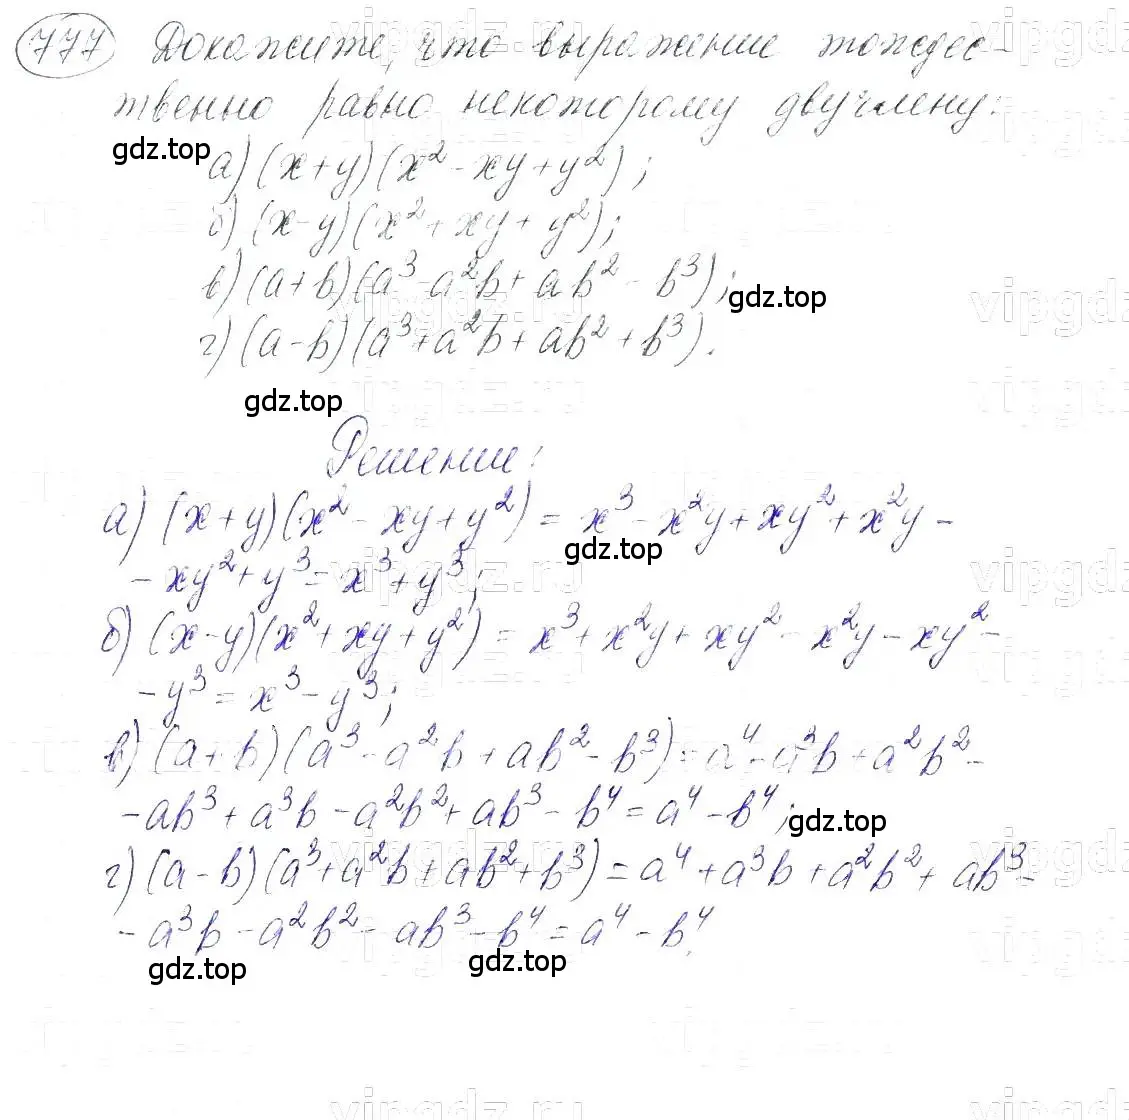 777 Докажите, что выражение тождес-
твенно равно некоторому двучлену:
gdz.top
а) (x+y)(x² - xy + y²);
б) (x-y)(x² + xy + y²);
в) (a+b)(a³ - a²b + ab² - b³);
gdz.top
г) (a-b)(a³ + a²b + ab² + b³).
gdz.top
Решение:
а) (x+y)(x² - xy + y²) = x³ - x²y + xy² + x²y -
gdz.top
- xy² + y³ = x³ + y³;
б) (x-y)(x² + xy + y²) = x³ + x²y + xy² - x²y - xy² -
- y³ = x³ - y³;
в) (a+b)(a³ - a²b + ab² - b³) = a⁴ - a³b + a²b² -
- ab³ + a³b - a²b² + ab³ - b⁴ = a⁴ - b⁴;
gdz.top
г) (a-b)(a³ + a²b + ab² + b³) = a⁴ + a³b + a²b² + ab³ -
- a³b - a²b² - ab³ - b⁴ = a⁴ - b⁴.
gdz.top gdz.top
vipgdz.ru